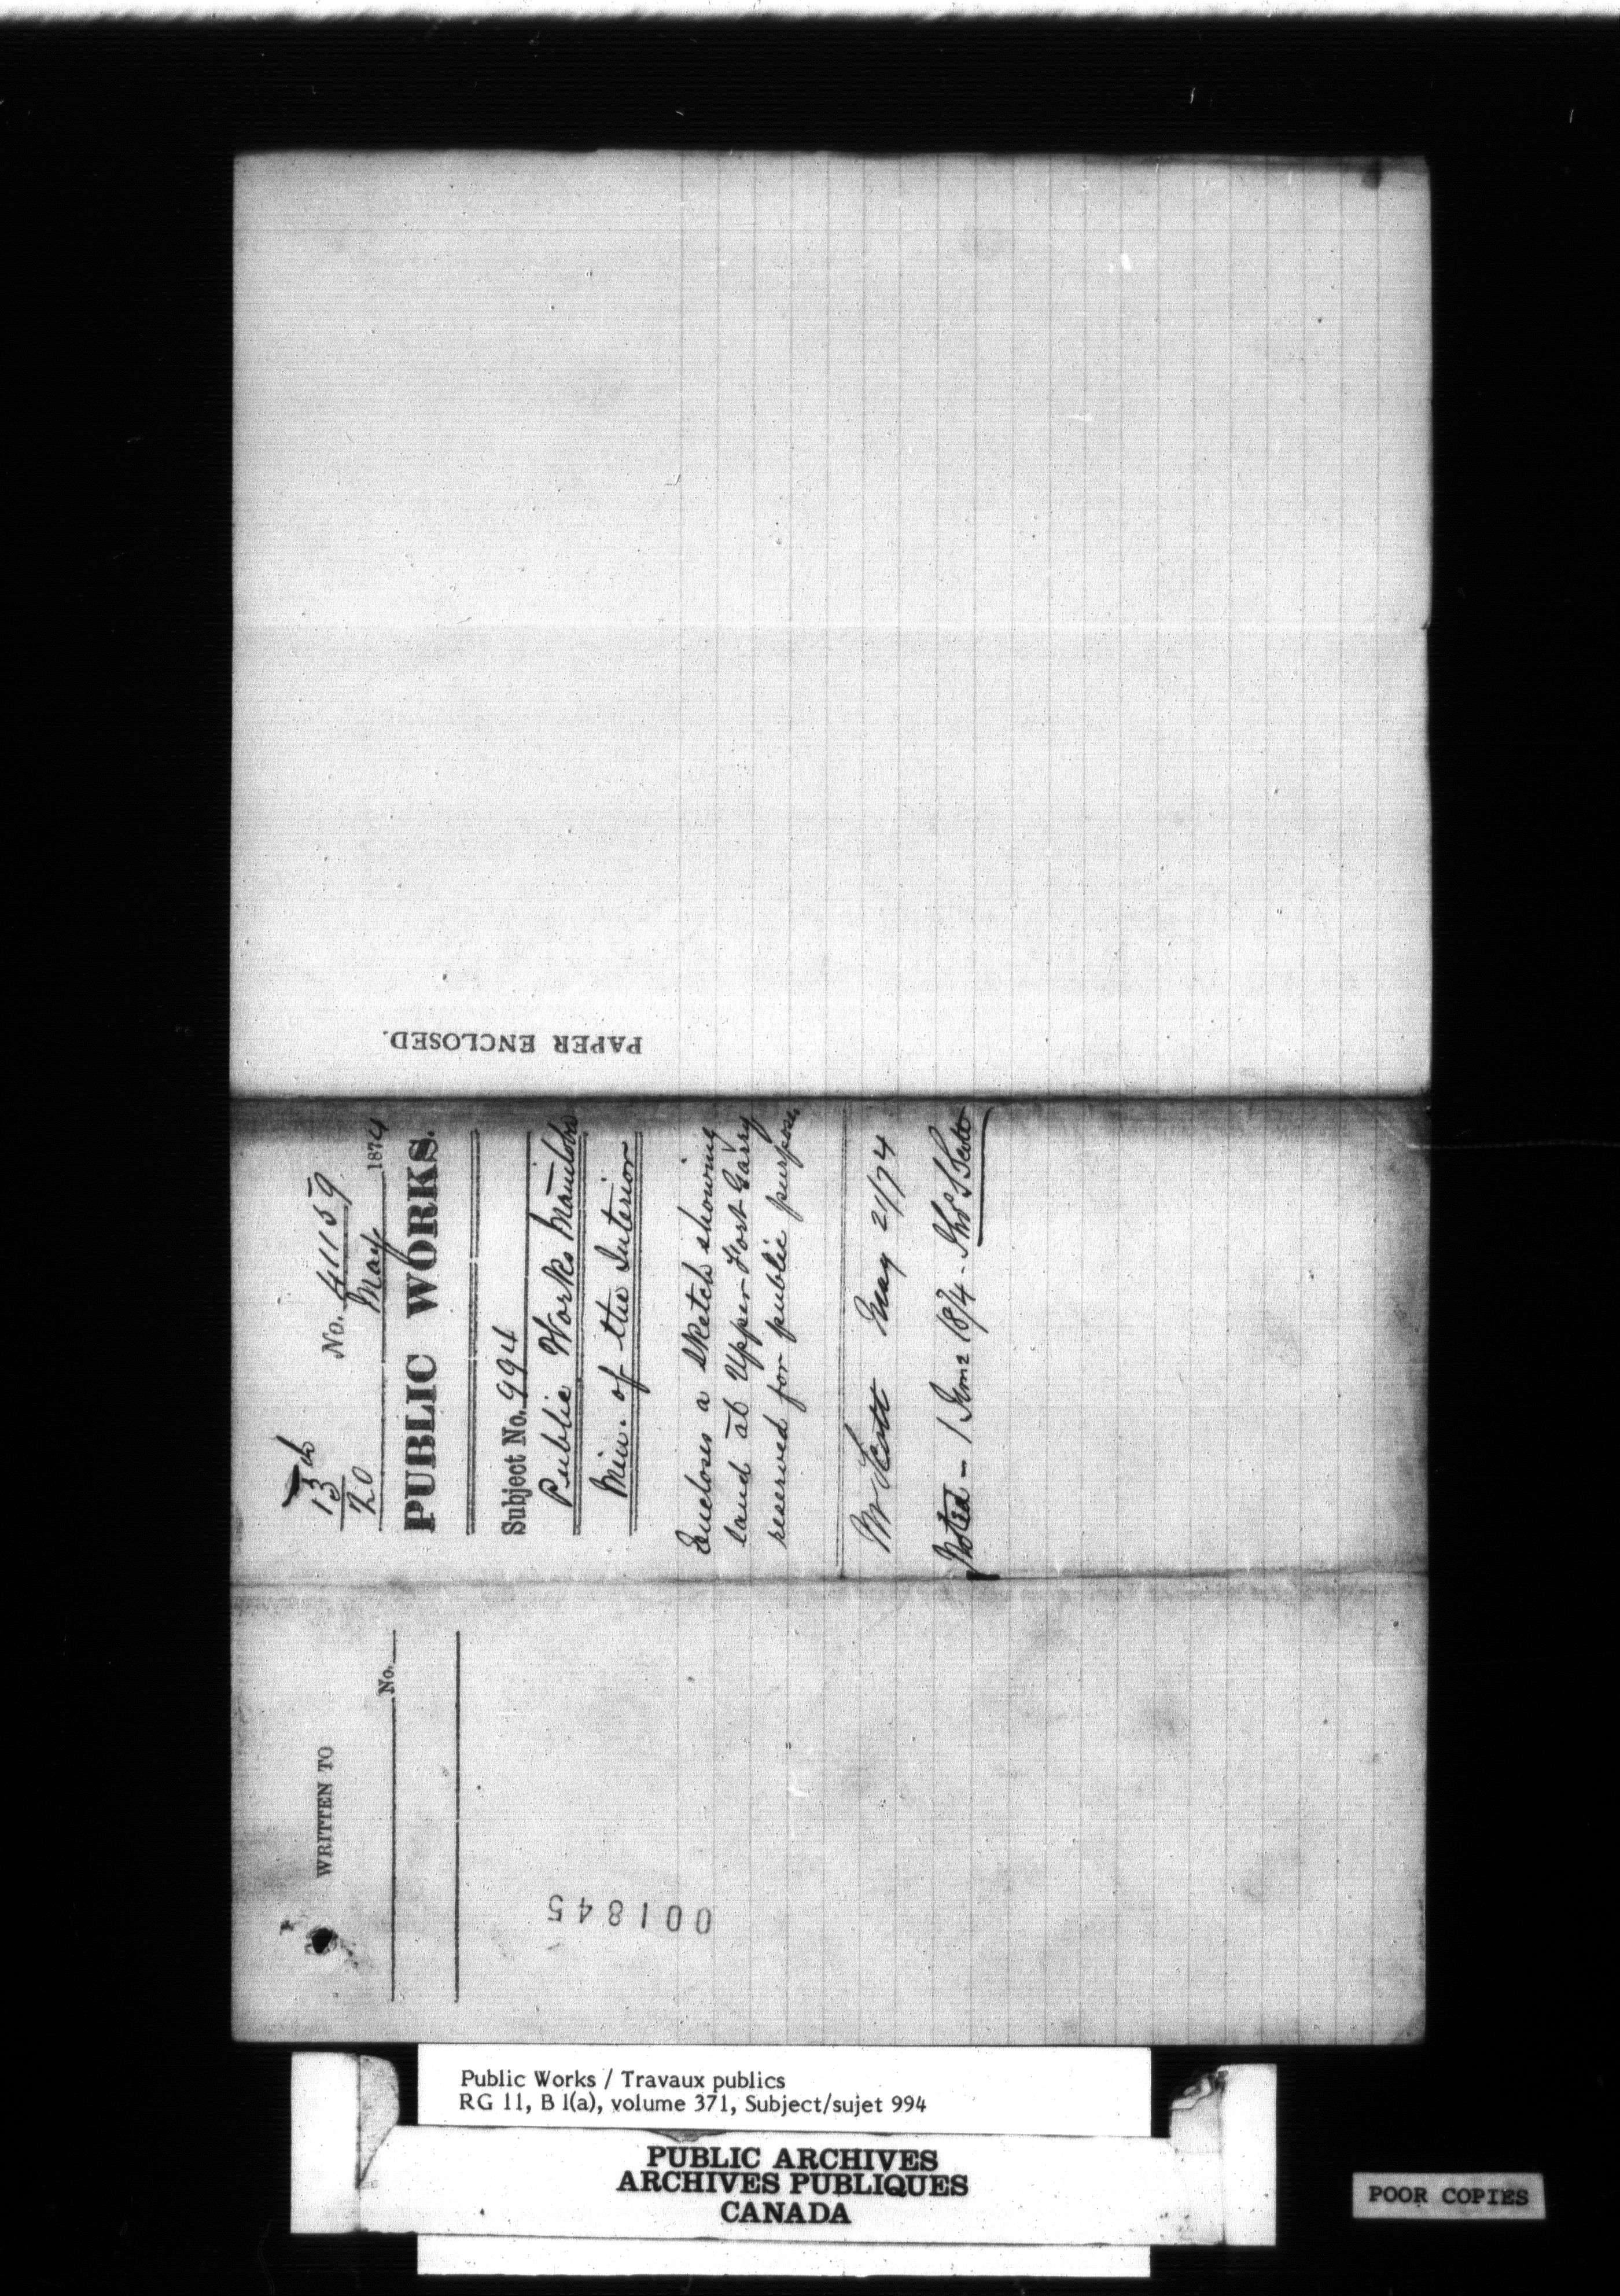 PAPER ENCLOSED.
13th
20
No. 41159
May 1874
PUBLIC WORKS.
Subject No. 994
Public Works Manitoba
Min. of the Interior
Encloses a sketch showing
land at Upper Fort Garry
reserved for public purposes
Mr Scott May 21/74
Noted - 1 June 1874 - Thos S Scott
WRITTEN TO
No.
001845
Public Works / Travaux publics
RG 11, B 1(a), volume 371, Subject/sujet 994
PUBLIC ARCHIVES
ARCHIVES PUBLIQUES
CANADA
POOR COPIES